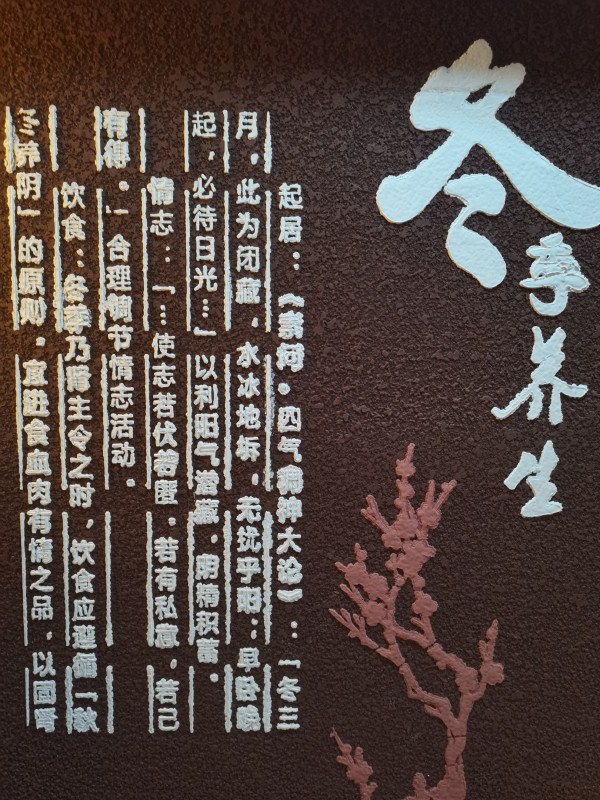 冬季养生
起居：《素问·四气调神大论》：「冬三
月，此为闭藏，水冰地坼，无扰乎阳；早卧晚
起，必待日光…」以利阳气潜藏，阴精积蓄。
情志：「…使志若伏若匿，若有私意，若已
有得。」合理调节情志活动。
饮食：冬季乃肾主令之时，饮食应遵循「秋
冬养阴」的原则，宜进食血肉有情之品，以固肾